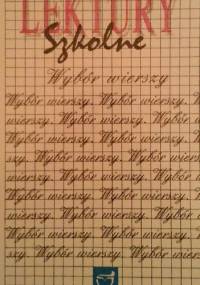 LEKTURY
Szkolne
Wybór wierszy
Wybór wierszy. Wybór wierszy. W
wierszy. Wybór wierszy. Wybór
Wybór wierszy. Wybór wierszy. W
wierszy. Wybór wierszy. Wybór
Wybór wierszy. Wybór wierszy. Wy
szy. Wybór wierszy. Wybór wier
wierszy. Wybór wierszy. Wybór
Wybór wierszy. Wybór wierszy. W
wierszy. Wybór wierszy. Wybór
Wybór wierszy. Wybór wierszy. Wy
szy. Wybór wierszy. Wybór wier